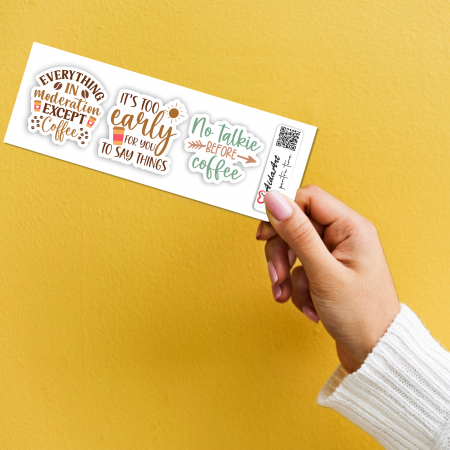 EVERYTHING
IN
moderation
EXCEPT
Coffee
IT'S TOO
early
FOR YOU
TO SAY THINGS
No Talkie
BEFORE
coffee
AidaArt